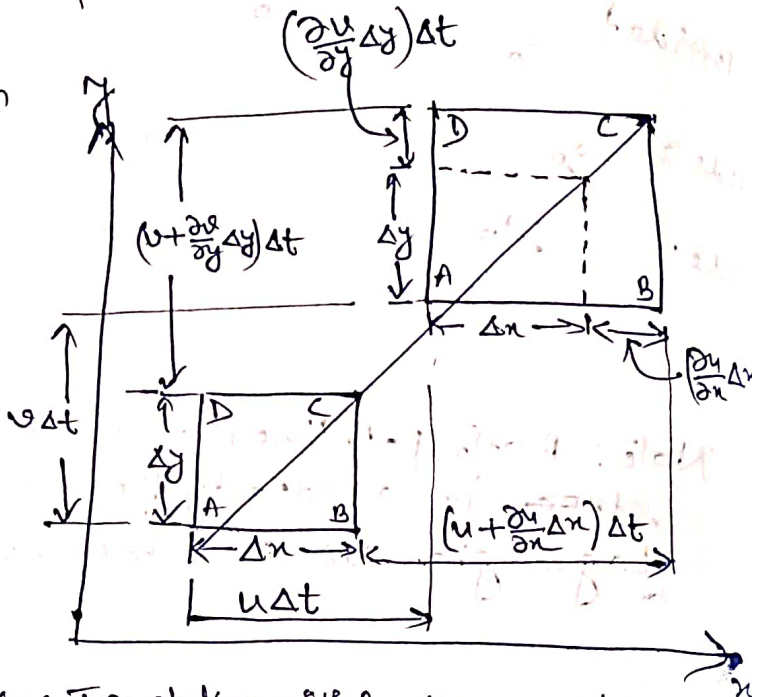 (∂v/∂y Δy)Δt
y
D C
(v+∂v/∂y Δy)Δt
Δy
A B
Δx
(∂u/∂x Δx
vΔt
D C
Δy
A B
Δx
(u+∂u/∂x Δx)Δt
uΔt
x